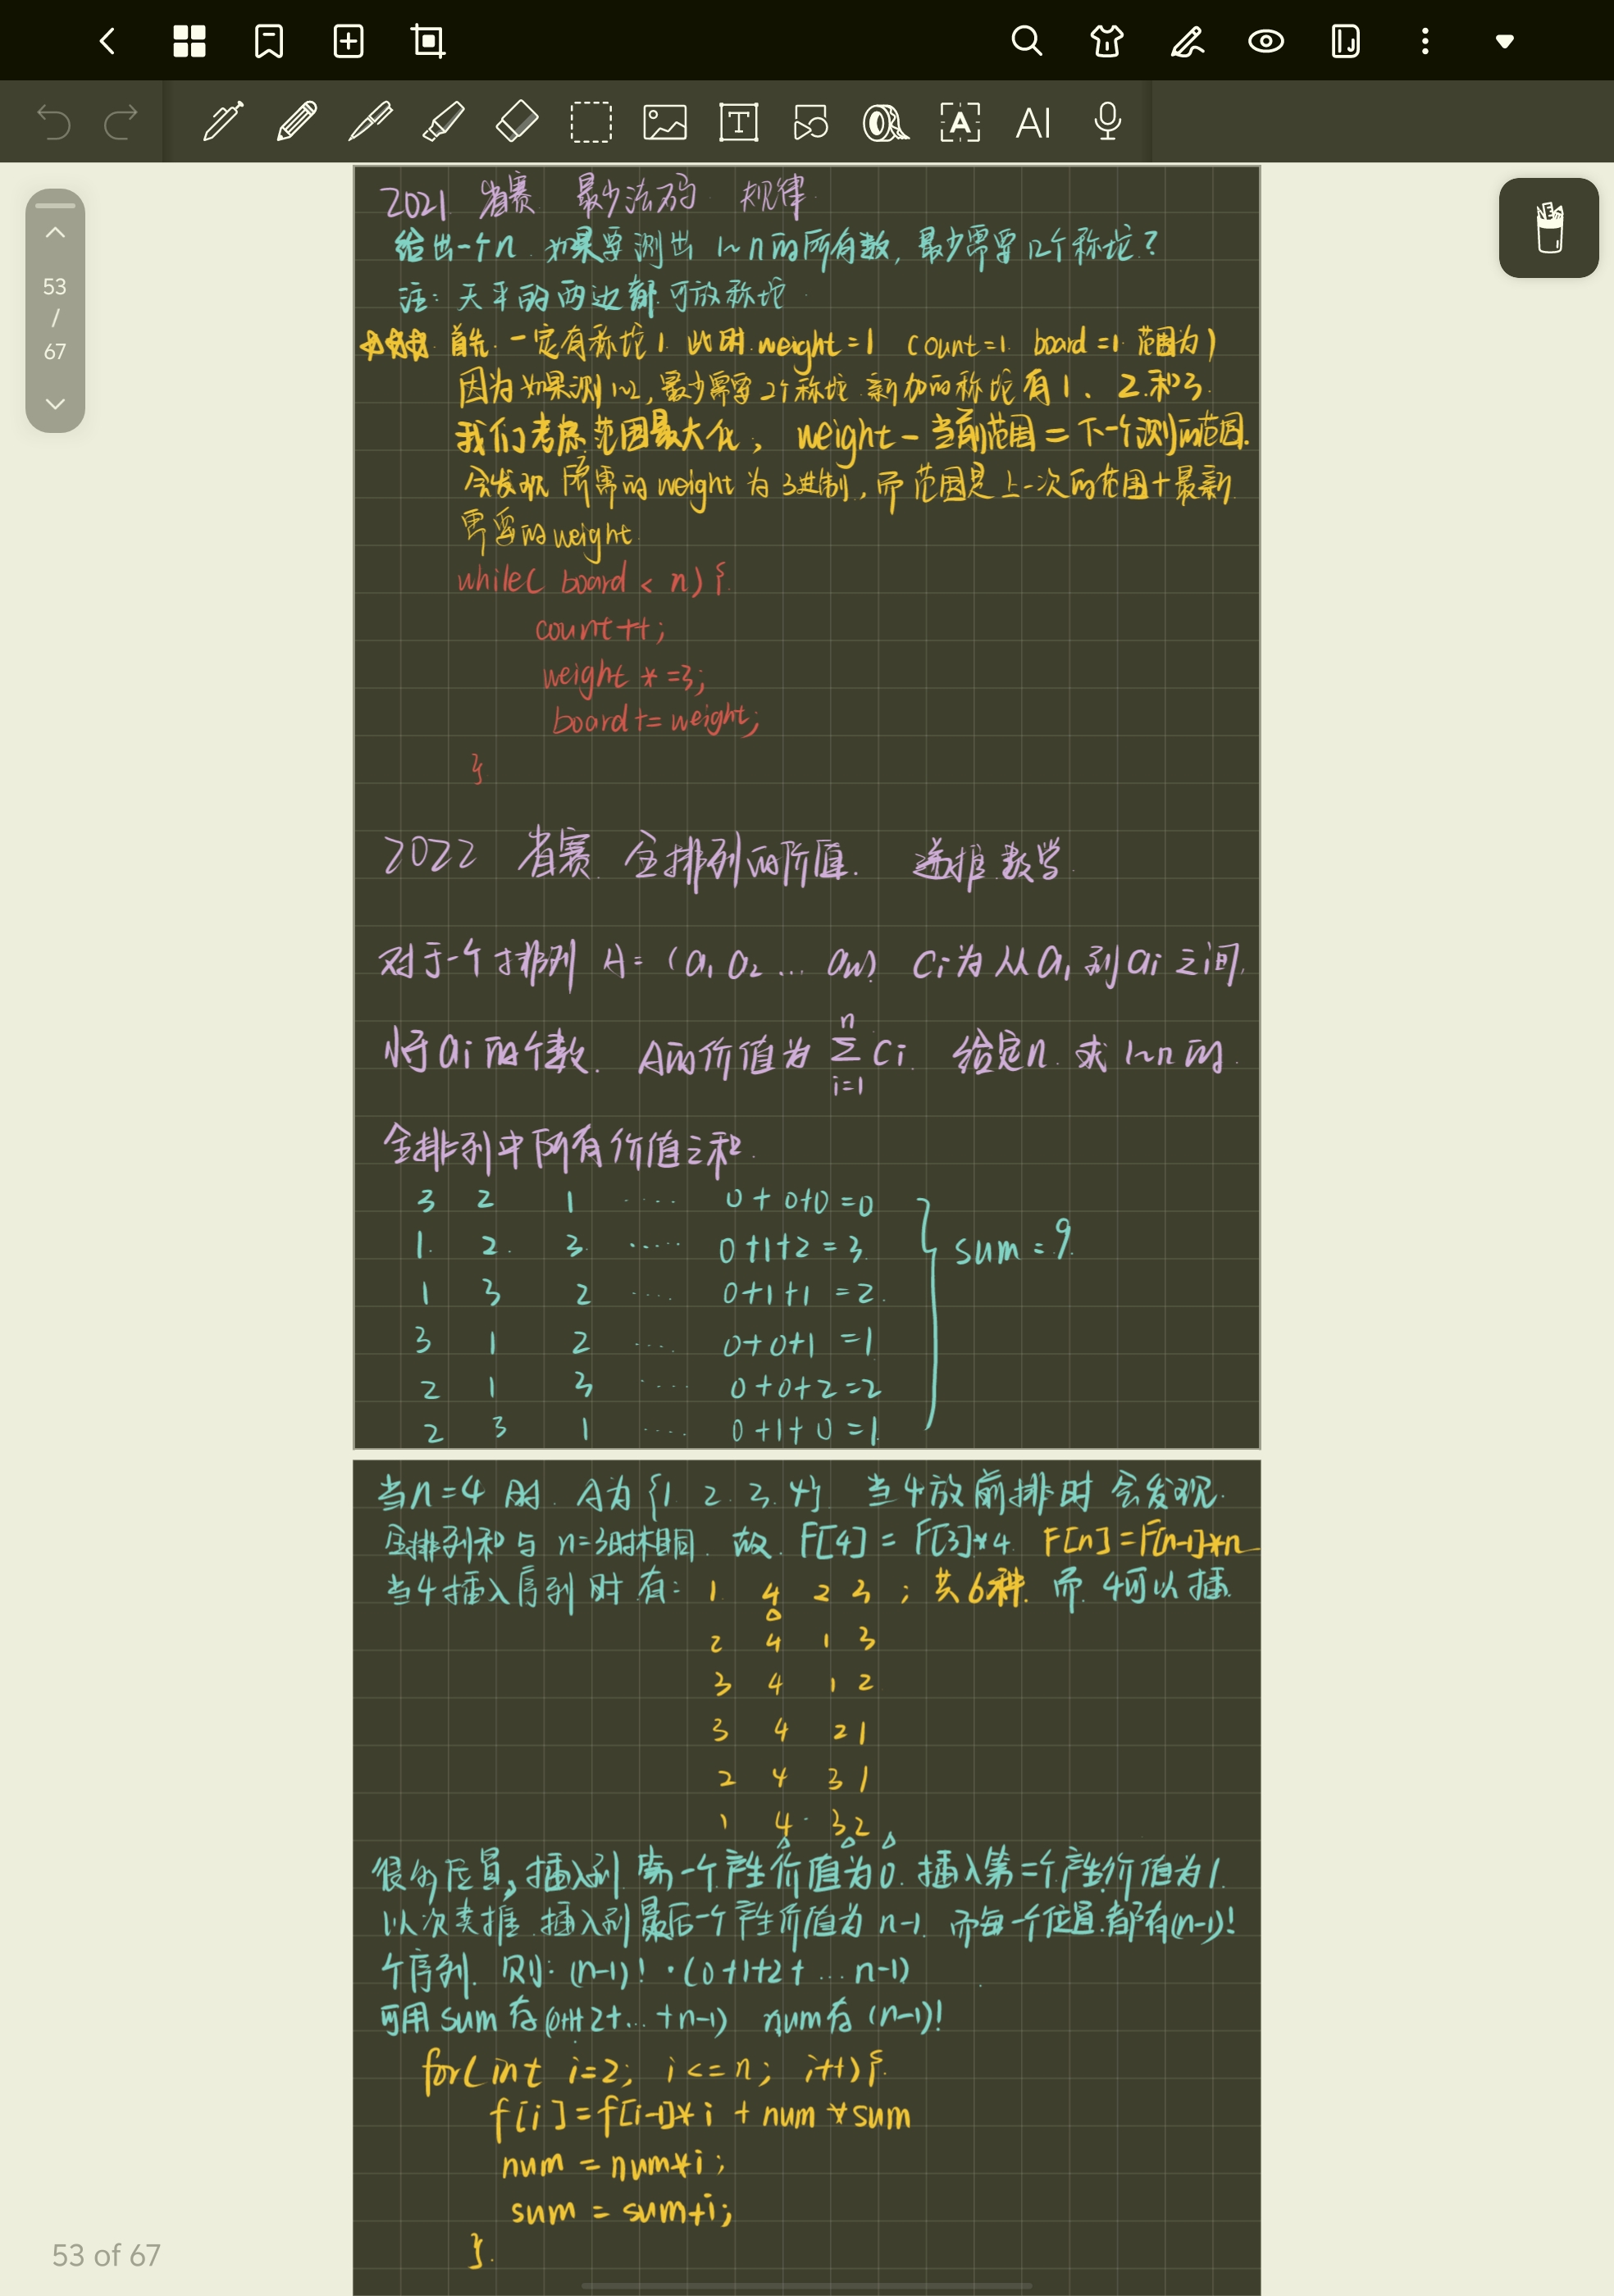 53
/
67
T
A
AI
2021 省赛 最少法码 规律
给出一个n. 如果要测出 1~n的所有数, 最少需要几个称坨?
注: 天平的两边都可放称坨
首先 一定有称坨1 此时 weight=1 count=1 board=1 范围为1
因为如果测1~2, 最少需要2个称坨 新加的称坨有1、2和3.
我们考虑范围最大化, weight-当前范围=下一个测的范围.
会发现 所需的weight为3进制, 而范围是上一次的范围+最新
需要的weight
while( board < n) {
count++;
weight *=3;
board+= weight;
}
2022 省赛 全排列的价值. 递推 数学
对于一个排列 A= (a1 a2 ... an) Ci为从a1到ai之间,
小于ai的个数. A的价值为 n∑i=1 Ci 给定n 求1~n的
全排列中所有价值之和.
3 2 1 .... 0+0+0=0
1 2 3 ..... 0+1+2=3
sum=9.
1 3 2 .... 0+1+1=2
3 1 2 .... 0+0+1=1
2 1 3 .... 0+0+2=2
2 3 1 .... 0+1+0=1
当n=4时 A为{1 2 3 4} 当4放前排时会发现
全排列和与n=3时相同. 故 F[4]=F[3]*4 F[n]=F[n-1]*n
当4插入序列时有: 1 4 2 3 ; 共6种. 而4可以插
2 4 1 3
3 4 1 2
3 4 2 1
2 4 3 1
1 4 3 2
很多位置, 插入到第一个产生价值为0. 插入第二个产生价值为1.
以次类推 插入到最后一个产生价值为n-1. 而每一个位置都有(n-1)!
个序列. 则: (n-1)!·(0+1+2+...n-1)
可用sum存(0+1+2+...+n-1) num存(n-1)!
for(int i=2; i<=n; i++){
f[i]=f[i-1]*i + num*sum
num = num*i;
sum = sum+i;
}.
53 of 67